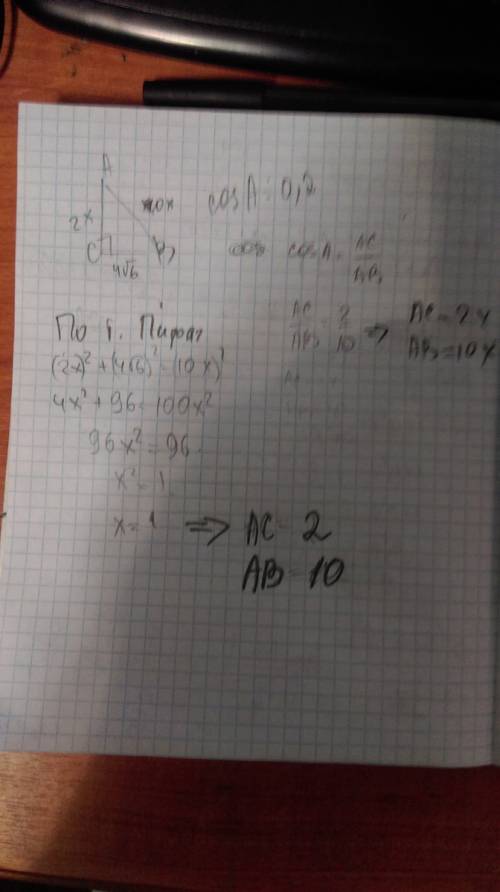 A
2x
10x
C
B
4√6
cos A = 0,2
cos A = AC/AB
AC/AB = 2/10 ⇒ AC = 2x
AB = 10x
По т. Пифаг
(2x)² + (4√6)² = (10x)²
4x² + 96 = 100x²
96x² = 96
x² = 1
x = 1 ⇒ AC = 2
AB = 10